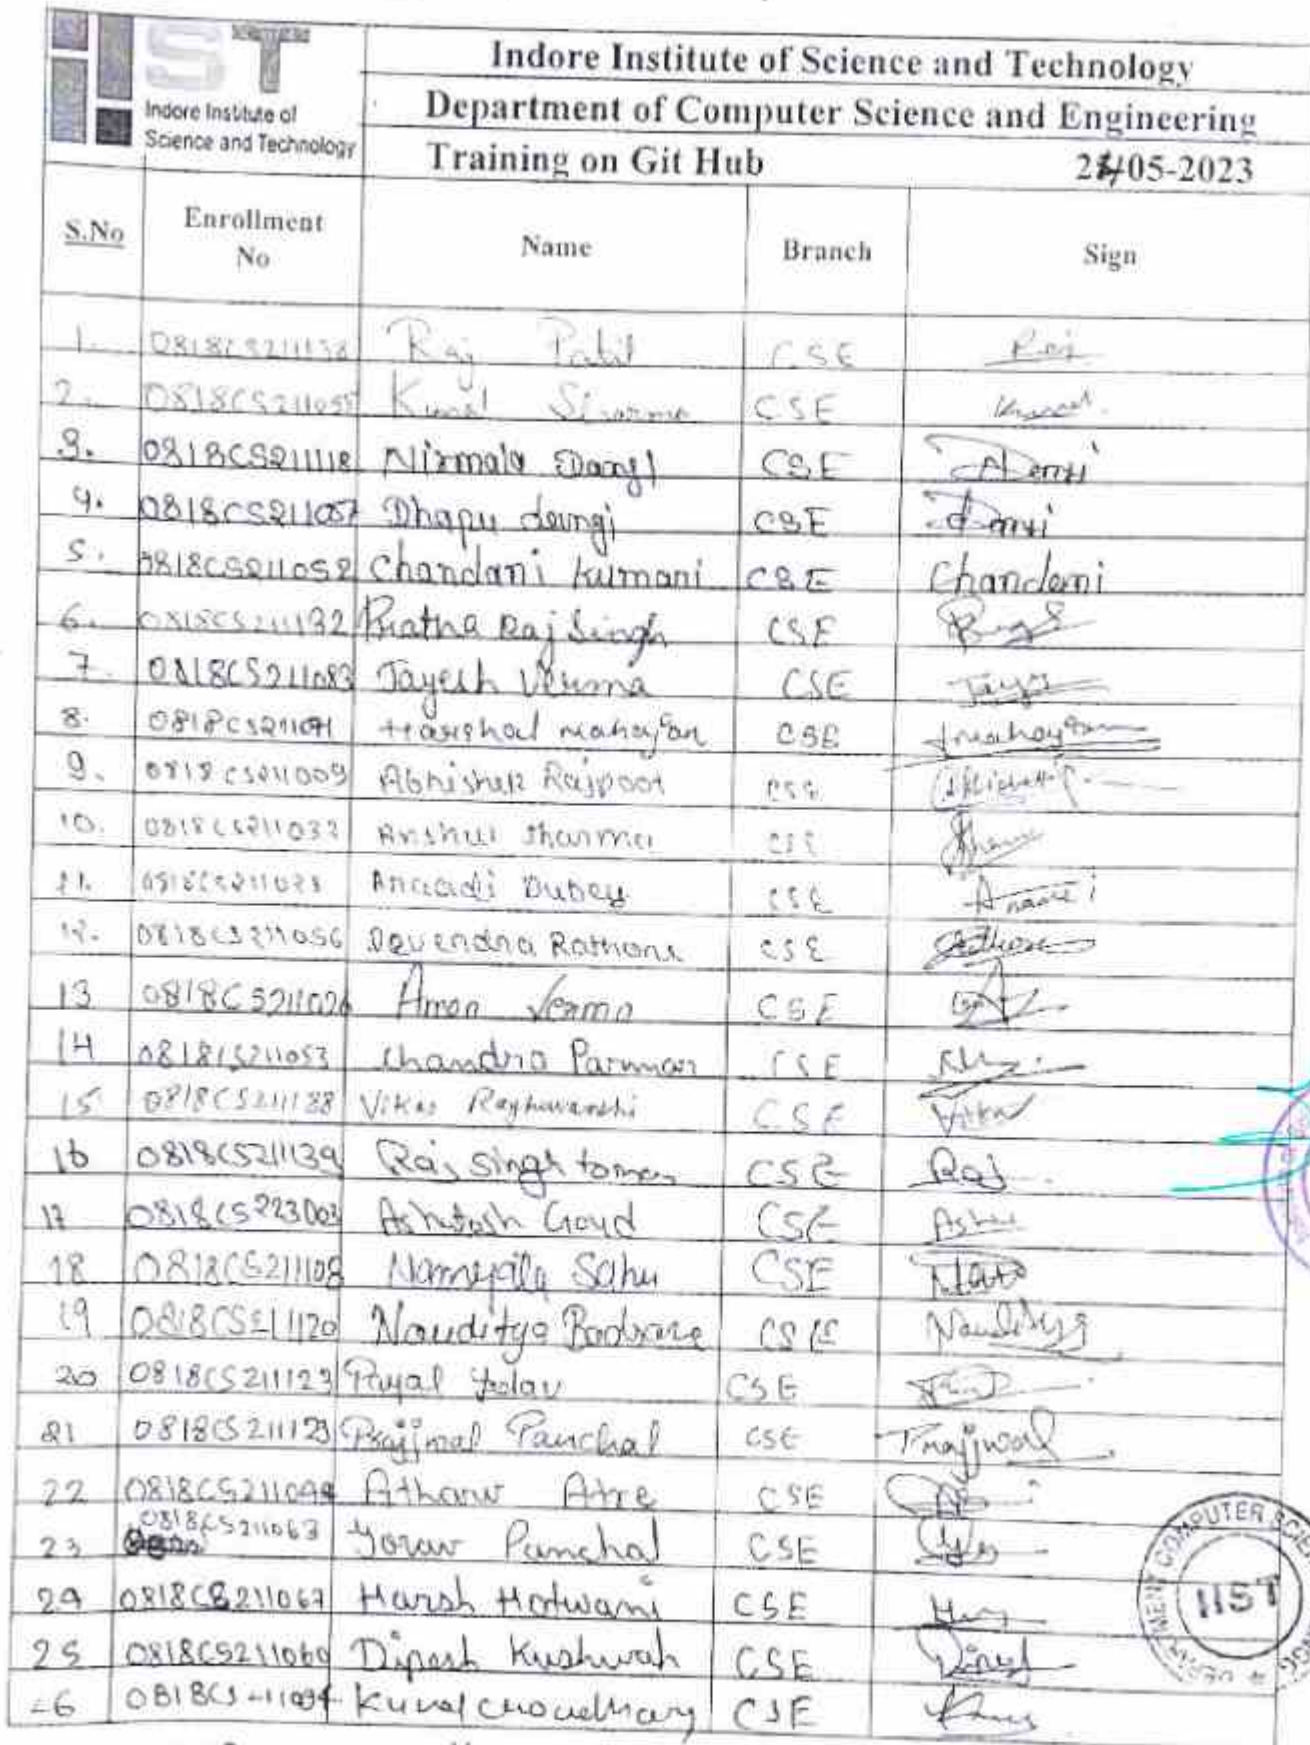 IIST
Indore Institute of
Science and Technology
Indore Institute of Science and Technology
Department of Computer Science and Engineering
Training on Git Hub 24-05-2023
S.No Enrollment No Name Branch Sign
1. 0818CS211138 Raj Patil CSE Raj
2. 0818CS211095 Kunal Sharma CSE Kunal
3. 0818CS211112 Nirmala Dangi CSE
4. 0818CS211057 Dhapu dangi CSE
5. 0818CS211052 Chandani Kumari CSE Chandani
6. 0818CS211132 Pratha Raj Singh CSE
7. 0818CS211083 Jayesh Verma CSE
8. 0818CS211071 Harshal mahajan CSE
9. 0818CS211009 Abhishek Rajpoot CSE
10. 0818CS211032 Anshul Sharma CSE
11. 0818CS211028 Anaadi Dubey CSE
12. 0818CS211056 Devendra Rathore CSE
13 0818CS211026 Aman Verma CSE
14 0818CS211053 Chandra Parmar CSE
15 0818CS211188 Vikas Raghuwanshi CSE Vikas
16 0818CS211139 Raj Singh tomar CSE Raj
17 0818CS223D03 Ashutosh Goud CSE
18 0818CS211108 Sahu CSE
19 0818CS211120 Nauditya Badsare CSE Nauditya
20 0818CS211123 Payal Yadav CSE
21 0818CS211123 Prajjwal Panchal CSE Prajjwal
22 0818CS211044 Atharv Atre CSE
23 0818CS211063 Panchal CSE
24 0818CS211067 Harsh Hotwani CSE
25 0818CS211060 Dipesh Kushwah CSE
26 Kunal Choudhary CSE
COMPUTER SCIEN
IIST